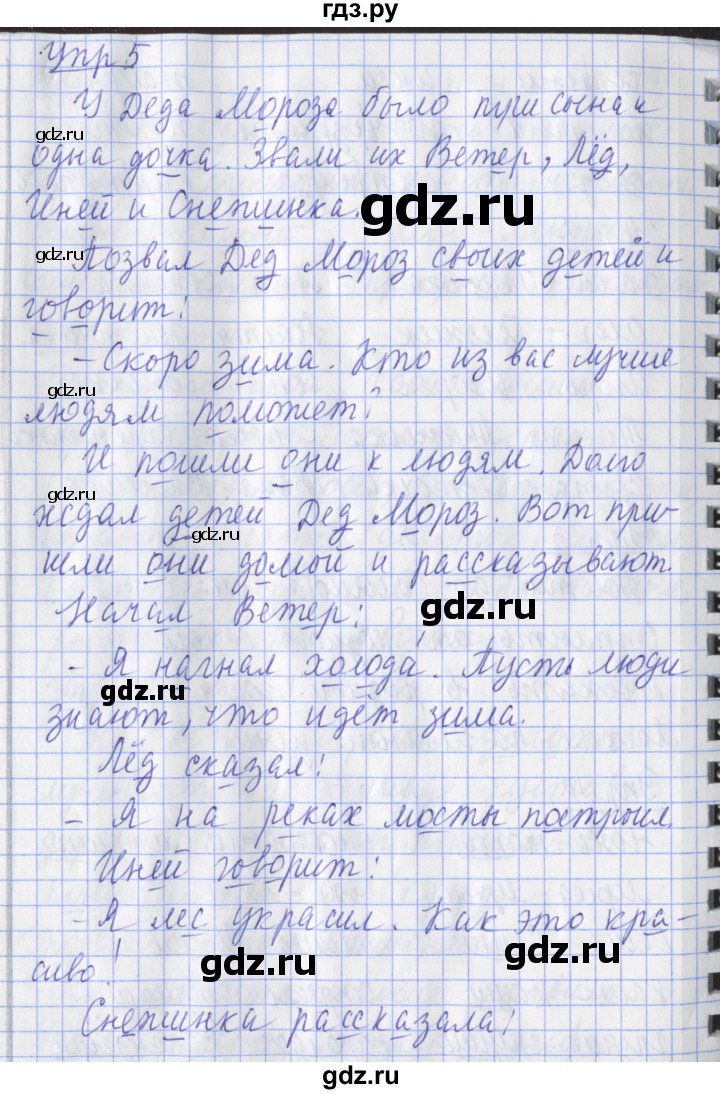 гдз.ру
Упр 5
У Деда Мороза было три сына и
gdz.ru
одна дочка. Звали их Ветер, Лёд,
Иней и Снежинка.
gdz.ru
gdz.ru
Позвал Дед Мороз своих детей и
говорит:
- Скоро зима. Кто из вас лучше
gdz.ru
gdz.ru
людям поможет?
И пошли они к людям. Долго
gdz.ru
ждал детей Дед Мороз. Вот при-
gdz.ru
шли они домой и рассказывают.
Начал Ветер:
gdz.ru
- Я нагнал холода. Пусть люди
gdz.ru
знают, что идёт зима.
Лёд сказал:
- Я на реках мосты построил.
Иней говорит:
- Я лес украсил. Как это кра-
gdz.ru
gdz.ru
сиво!
Снежинка рассказала:
gdz.ru